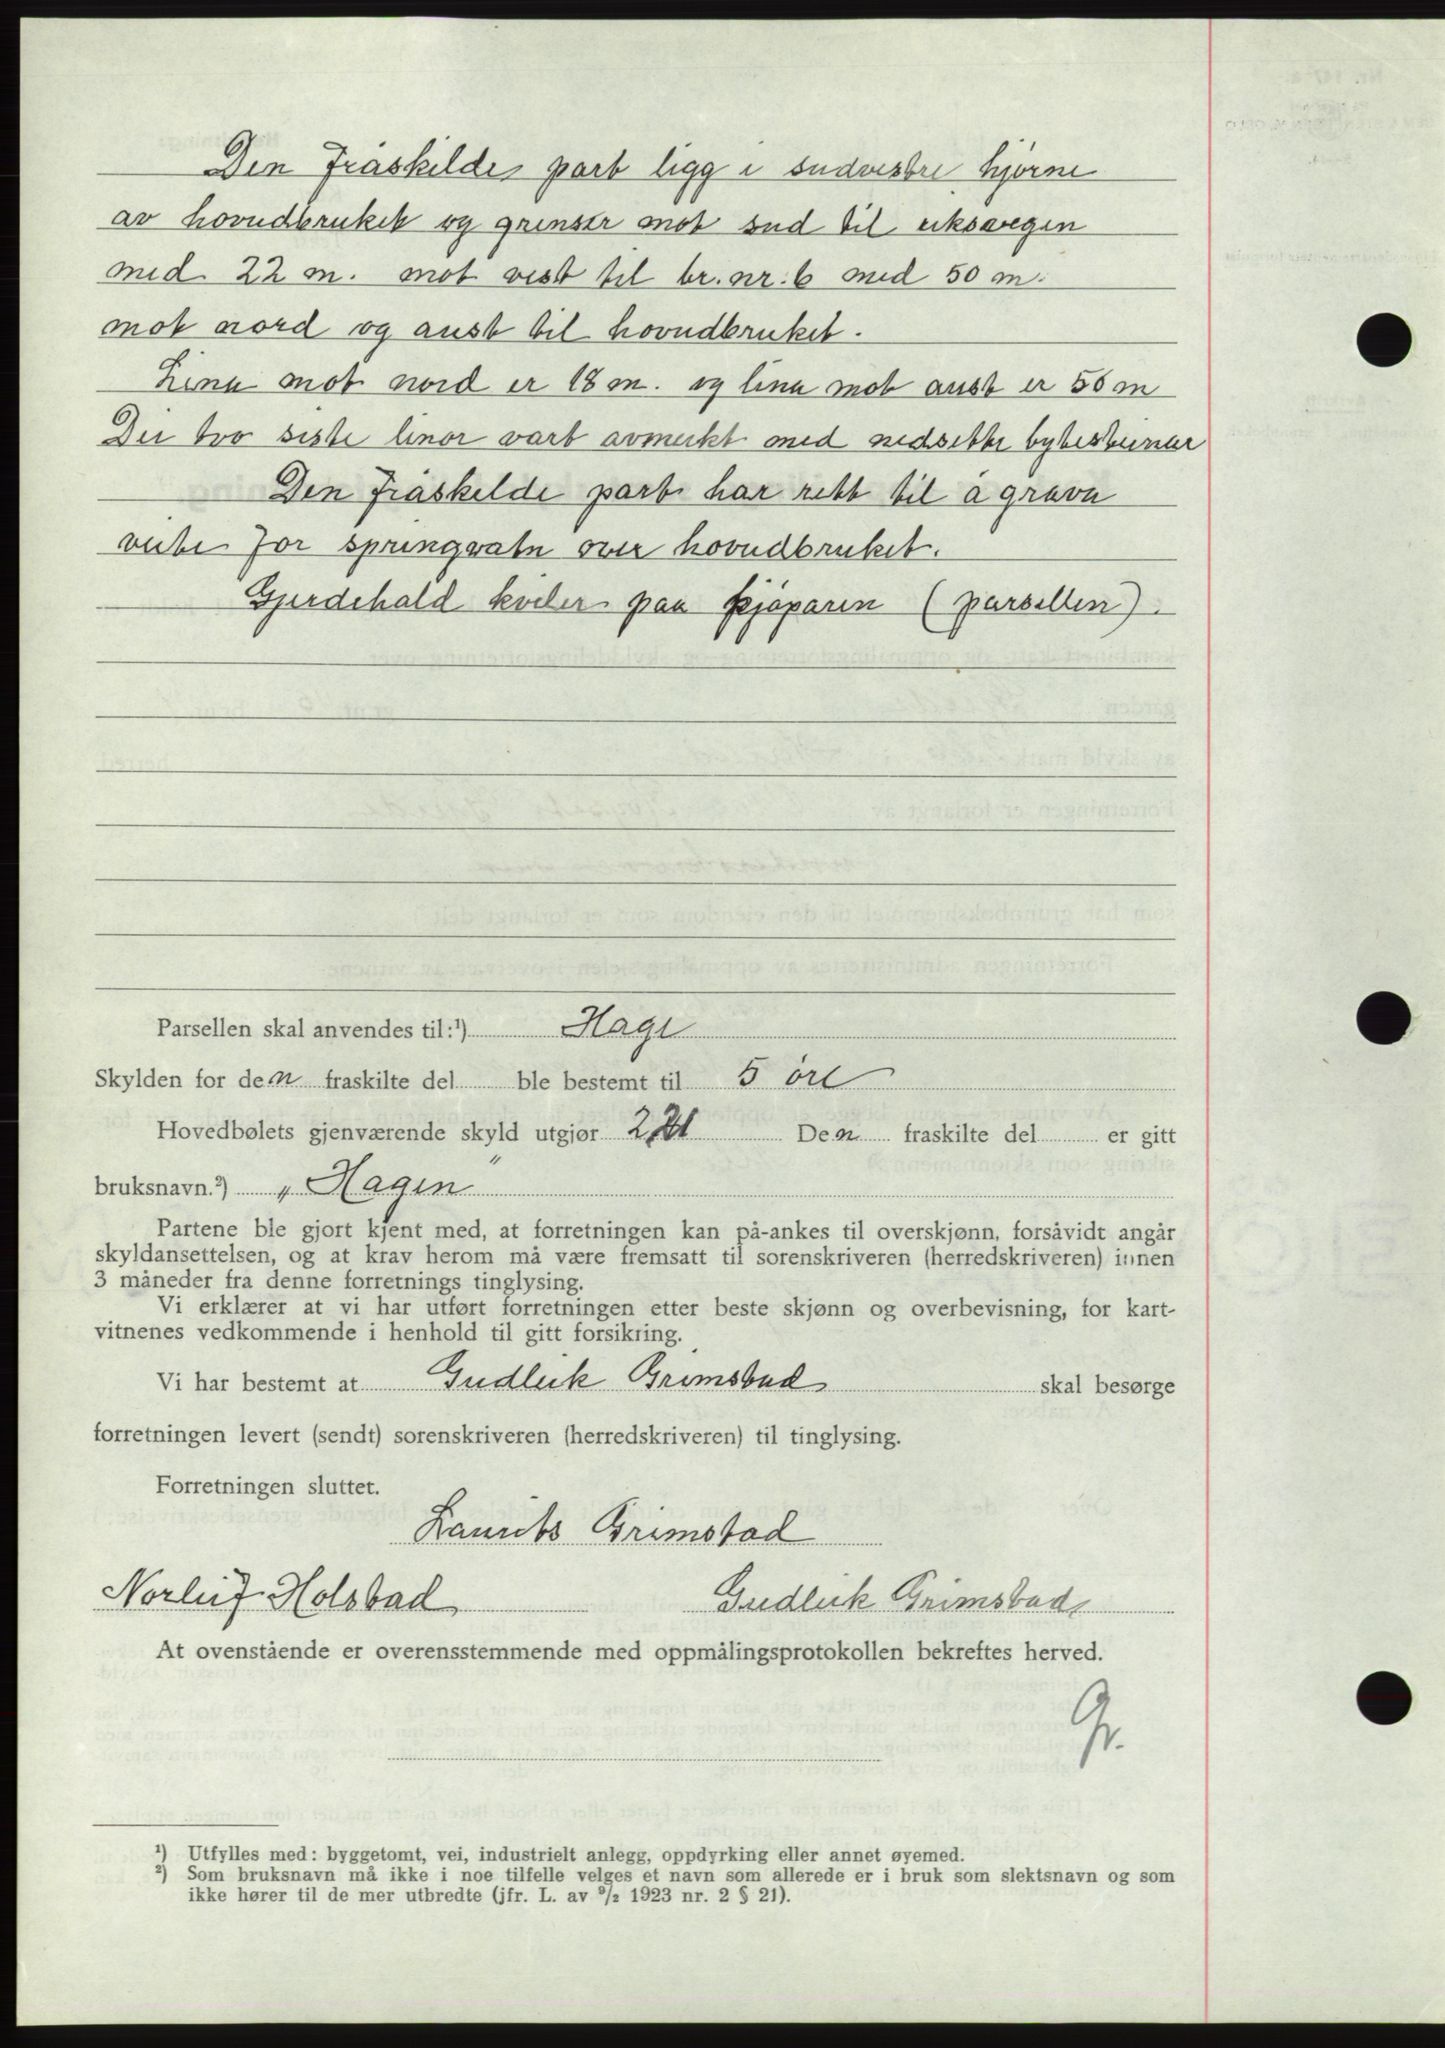 Den fråskilde part ligg i sudvestre hjørne
av hovudbruket og grenser mot sud til riksvegen
med 22 m. mot vest til br. nr. 6 med 50 m.
mot nord og aust til hovudbruket.
Lina mot nord er 18 m. og lina mot aust er 56 m
Dei tvo siste linor vart avmerkt med nedsette bytesteinar
Den fråskilde part har rett til å grava
veite for springvatn over hovudbruket.
Gjerdehald kviler paa kjøparen (parsellen).
Parsellen skal anvendes til:¹) Hage
Skylden for den fraskilte del ble bestemt til 5 øre
Hovedbølets gjenværende skyld utgjør Den fraskilte del er gitt
bruksnavn.²) „Hagen"
Partene ble gjort kjent med, at forretningen kan på-ankes til overskjønn, forsåvidt angår
skyldansettelsen, og at krav herom må være fremsatt til sorenskriveren (herredskriveren) innen
3 måneder fra denne forretnings tinglysing.
Vi erklærer at vi har utført forretningen etter beste skjønn og overbevisning, for kart-
vitnenes vedkommende i henhold til gitt forsikring.
Vi har bestemt at Gudleik Grimstad skal besørge
forretningen levert (sendt) sorenskriveren (herredskriveren) til tinglysing.
Forretningen sluttet.
Laurits Grimstad
Norleif Holstad Gudleik Grimstad
At ovenstående er overensstemmende med oppmålingsprotokollen bekreftes herved.
Gr.
¹) Utfylles med: byggetomt, vei, industrielt anlegg, oppdyrking eller annet øyemed.
²) Som bruksnavn må ikke i noe tilfelle velges et navn som allerede er i bruk som slektsnavn og som
ikke hører til de mer utbredte (jfr. L. av ⁹/₂ 1923 nr. 2 § 21).